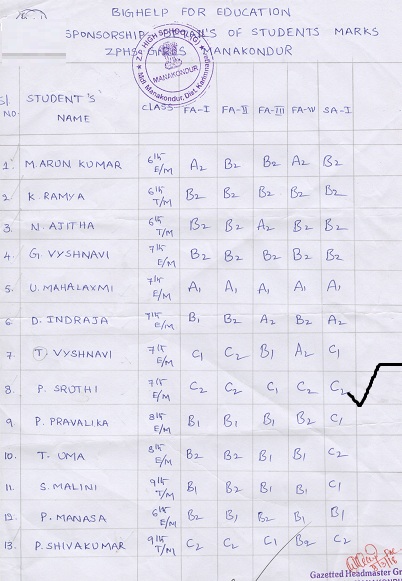 BIGHELP FOR EDUCATION
SPONSORSHIP OF STUDENTS MARKS
ZPHS MANAKONDUR
Z.P. HIGH SCHOOL
MANAKONDUR
Mdl Manakondur, Dist. Karimnagar
Sl NO. STUDENT'S NAME CLASS FA-I FA-II FA-III FA-IV SA-I
1. M. ARUN KUMAR 6th E/M A2 B2 B2 A2 B2
2. K. RAMYA 6th T/M B2 B2 B2 B2 B2
3. N. AJITHA 6th T/M B2 B2 A2 B2 B2
4. G. VYSHNAVI 7th E/M B2 B2 B2 B2 B2
5. U. MAHALAXMI 7th E/M A1 A1 A1 A1 A1
6. D. INDRAJA 7th E/M B1 B2 A2 B2 A2
7. T. VYSHNAVI 7th E/M C1 C2 B1 A2 C1
8. P. SRUTHI 7th E/M C2 C2 C1 C2 C2
9. P. PRAVALIKA 8th E/M B1 B1 B1 B2 C1
10. T. UMA 8th E/M B2 B2 B1 B1 C2
11. S. MALINI 9th T/M B1 B2 B1 B1 C1
12. P. MANASA 6th E/M B2 B1 B2 B1 B1
13. P. SHIVAKUMAR 9th T/M C2 C2 C1 B2 C2
Gazetted Headmaster Gr